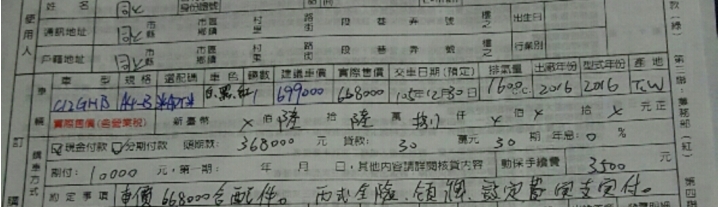 姓名 同上 身份證號
使用人 通訊地址 同上 市縣 市區鄉鎮 村里 路街 段 巷 弄 號 樓之 出生日
戶籍地址 同上 市縣 市區鄉鎮 村里 路街 段 巷 弄 號 樓之 行業別
車型 規格 選配碼 車色 輛數 建議車價 實際售價 交車日期(預定) 排氣量 出廠年份 型式年份 產地
白.黑.紅 1 699000 668000 105年12月30日 1600c.c 2016 2016 T.W
實際售價(含營業稅) 新臺幣 X 佰 陸 拾 陸 萬 捌 仟 X 佰 X 拾 X 元正
購車方式 現金付款 分期付款 頭期款: 368000 元 貸款: 30 萬元 30 期 年息: 0 %
割付: 10000 元,第一期: 年 月 日,其他內容請詳閱核貸內容 動保手續費 3500 元
約定事項 車價668000含配件。丙式全險.領牌.設定費實支實付。
第二聯:業務部(紅)
第四聯